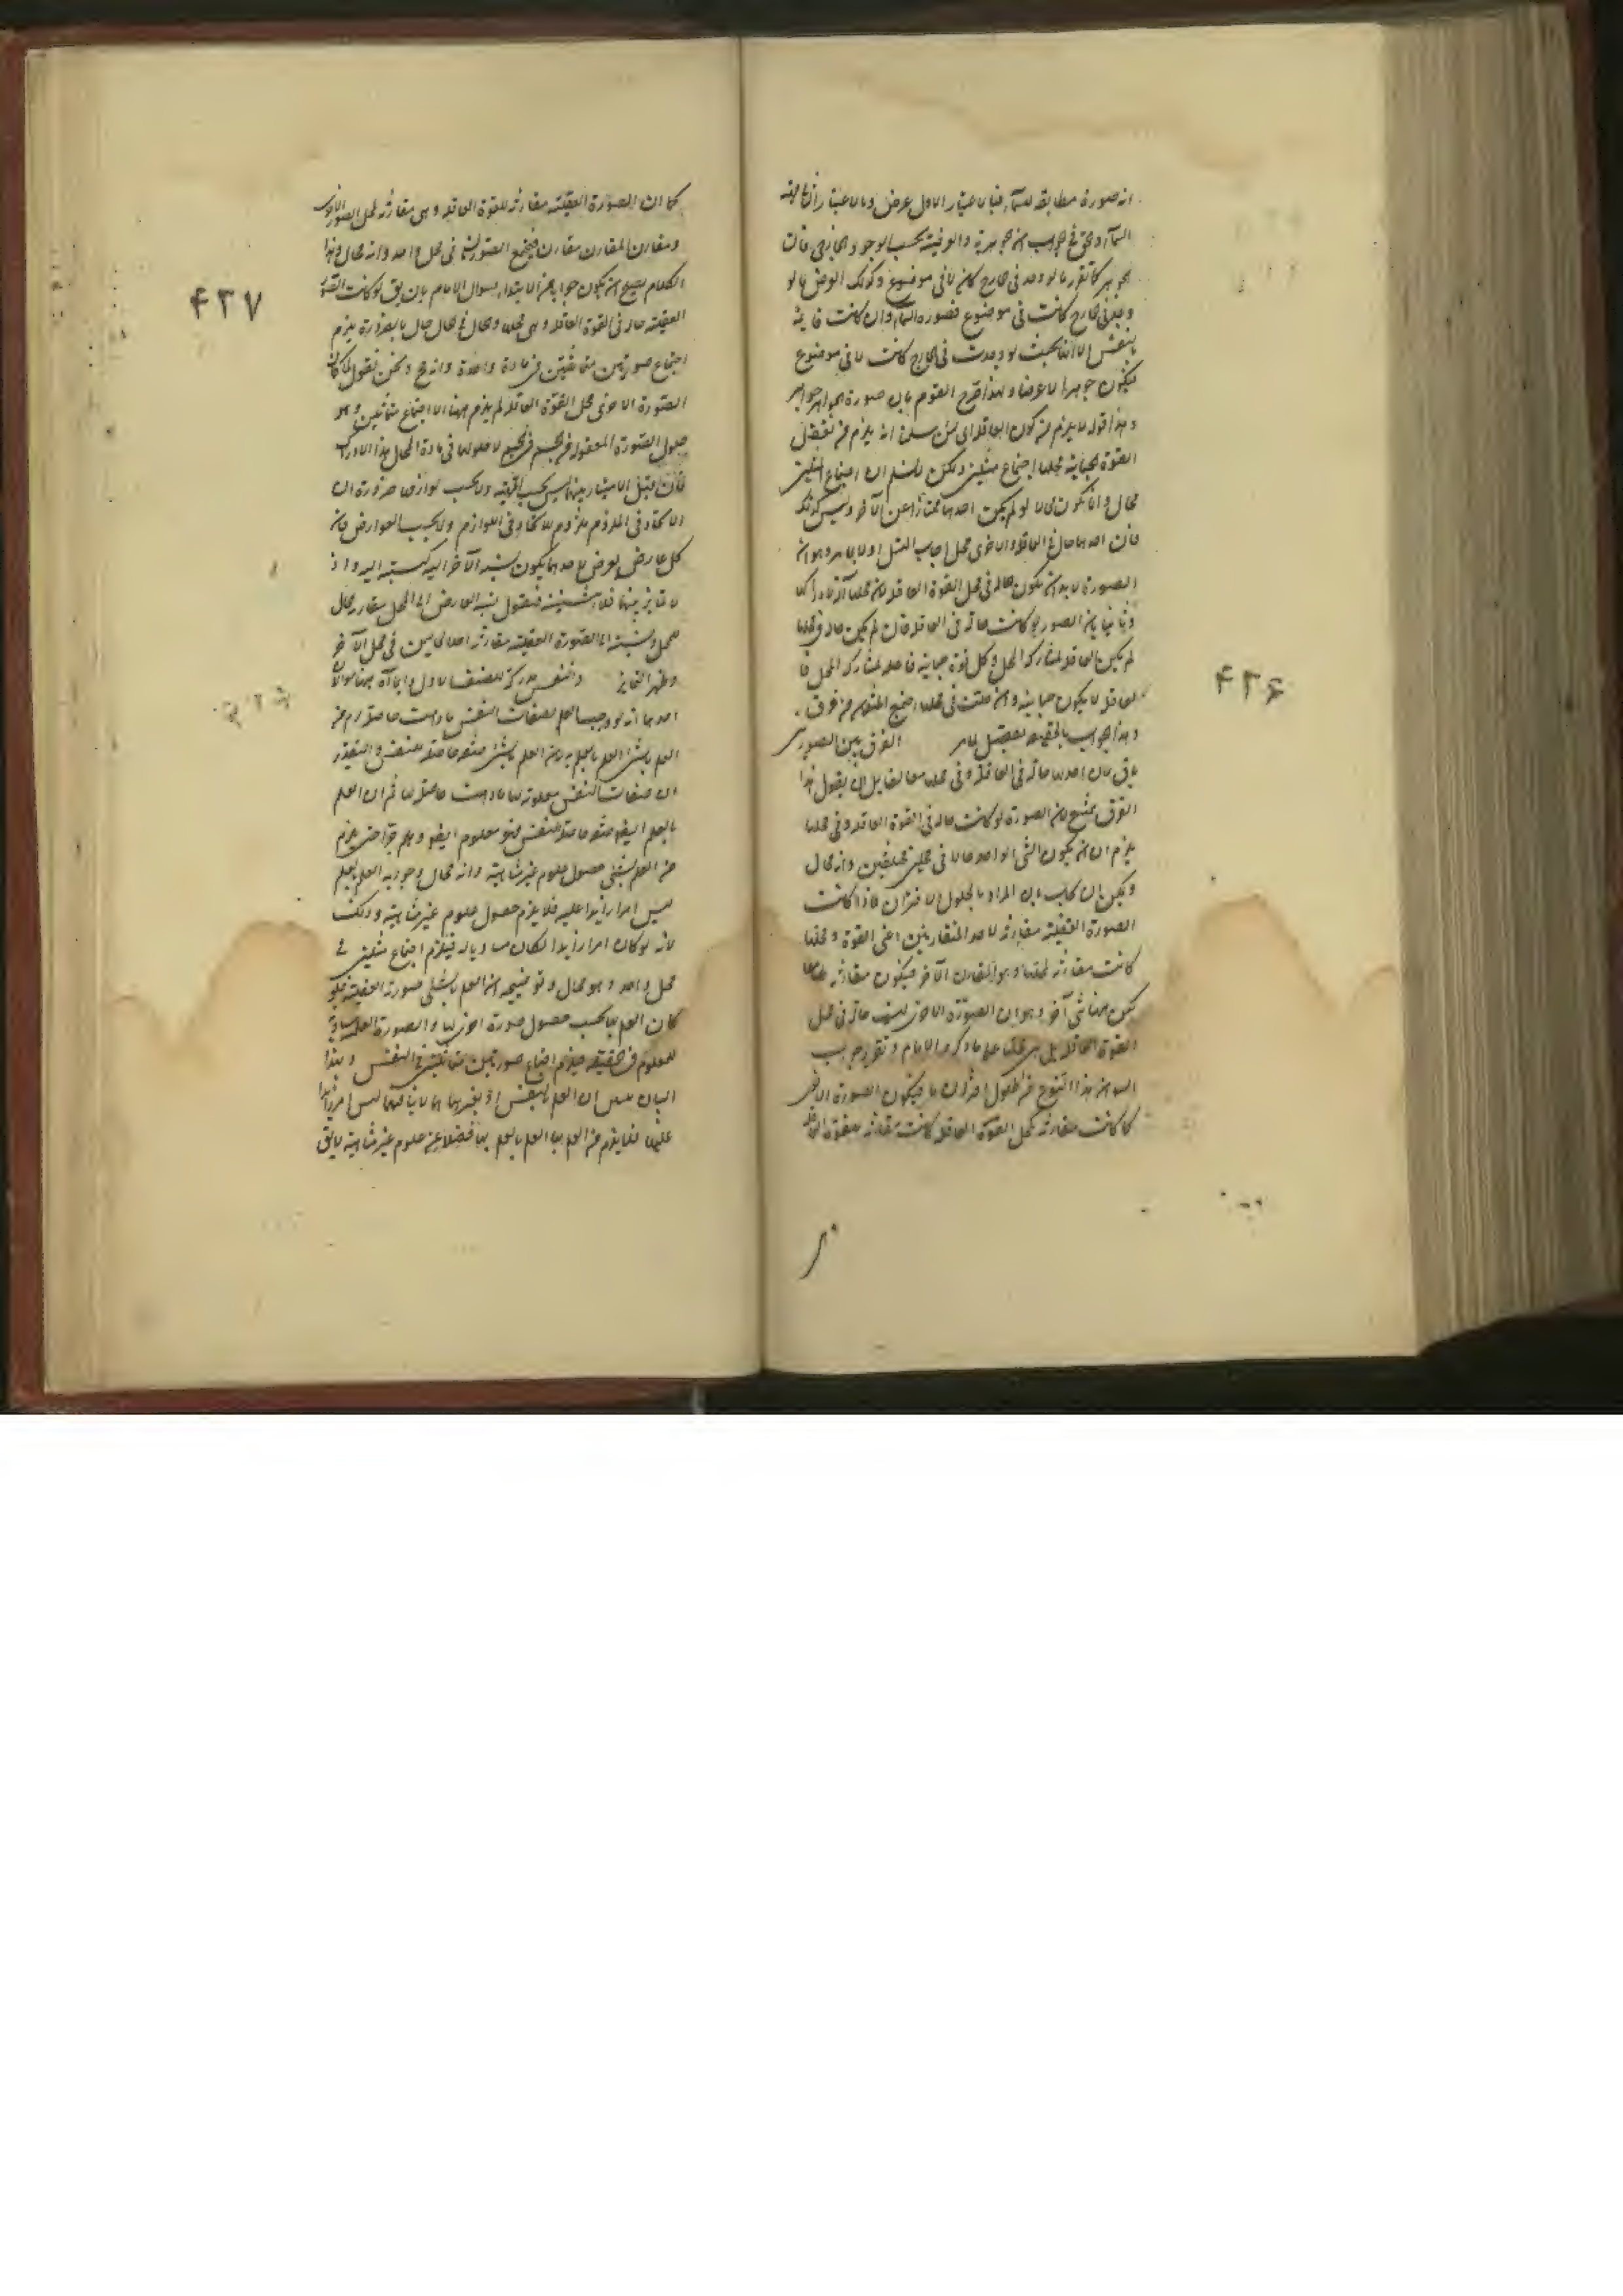 انه صورة مطابقة للسماء فبالاعتبار الاول عرض وبالاعتبار الثانى
السماء والحق فى الجواب ان الجوهرية والعرضية بحسب الوجود الخارجى فان
الجوهر كما تقرر ما لو وجد فى الخارج كان لا فى موضوع وكذلك العرض ما لو
وجد فى الخارج كانت فى موضوع فصورة السماء وان كانت قائمة
بالنفس الا انها بحيث لو وجدت فى الخارج كانت لا فى موضوع
فيكون جوهرا لا عرضا ولهذا صرح القوم بان صورة الجواهر جواهر
وهذا قوله لا يلزم من كون العاقلة اى لئن سلمنا انه يلزم من تعقل
القوة الجسمانية محلها اجتماع مثلين ولكن لا نسلم ان اجتماع المثلين
محال وانما يكون محالا لو لم يكن احدهما ممتازا عن الآخر وليس كذلك
فان احدهما حال فى العاقلة والاخرى محل اجاب الشيخ اولا بما مر وهو ان
الصورة لا بد ان يكون حالة فى محل القوة العاقلة لان محلها آلة لادراكها
وثانيا بان الصورة لو كانت حالة فى العاقلة فان لم يكن حالة فى محلها
لم يكن العاقلة لمشاركة المحل وكل قوة جسمانية فاعلة لمشاركة المحل فا
لعاقلة لا يكون جسمانية وان حلت فى محلها اجتمع المثلان من غير فرق
وهذا الجواب بالحقيقة تفصيل لما مر الفرق بين الصورتين
باق فان احدهما حالة فى العاقلة وفى محلها معا لقايل ان يقول هذا
الفرق ممتنع لان الصورة لو كانت حالة فى القوة العاقلة وفى محلها
يلزم ان يكون الشى الواحد حالا فى محلين مختلفين وانه محال
ويمكن ان يجاب بان المراد بالحلول الاقتران فاذا كانت
الصورة العقلية مقارنة لاحد المتقارنين اعنى القوة ومحلها
كانت مقارنة لمحلها وهو المقارن الآخر فيكون مقارنة لهما
لكن ههنا شى آخر وهو ان الصورة الاخرى ليست حالة فى محل
القوة العاقلة بل هى محلها على ما ذكره الامام وتقرير جواب
الصورة الاخرى
كما كانت مقارنة لمحل القوة العاقلة كانت مقارنة للقوة العاقلة
۴۳۶
كما ان الصورة العقلية مقارنة للقوة العاقلة وهى مقارنة لمحل الصورة الاخرى
ومقارن المقارن مقارن فيجتمع الصورتان فى محل واحد وانه محال وهذا
الكلام يصلح ان يكون جوابا من الابتداء لسوال الامام بان يق لو كانت الصورة
العقلية حالة فى القوة العاقلة وهى محلها والحال فى الحال حال بالضرورة يلزم
اجتماع صورتين متماثلتين فى مادة واحدة وانه مح ونحن نقول لما كان
الصورة الاخرى محل القوة العاقلة لم يلزم ههنا الا اجتماع متماثلين وهو
حلول الصورة المعقولة فى الجسم فى الجسم لا حلولها فى مادة المحال هذا
فان قيل الامتياز بينهما ليس بحسب المهية ولا بحسب لوازمها ضرورة ان
الاتحاد فى الملزوم ملزوم للاتحاد فى اللوازم ولا بحسب العوارض فان
كل عارض يعرض لاحدهما يكون نسبة الآخر اليه كنسبته اليه واذ
لا تمايز بينهما فلا اثنينية فنقول نسبة العارض الى المحل مقارنة حال
لمحل ونسبته الى الصورة العقلية مقارنة احد الحالين فى محل الآخر
وظهر التمايز والنفس مدركة للصفات الاول ههنا سوالان
احدهما انه لو وجب العلم بصفات النفس ما دامت حاصلة لزم من
العلم بالشى العلم بالعلم به لان العلم بالشى صفة حاصلة للنفس والتقدير
ان صفات النفس معلومة لها ما دامت حاصلة لها ثم ان العلم
بالعلم ايضا صفة حاصلة للنفس فهو معلوم ايضا وهلم جرا حتى يلزم
من العلم بشى حصول علوم غير متناهية وانه محال وجوابه العلم بالعلم
ليس امرا زايدا عليه فلا يلزم حصول علوم غير متناهية وذلك
لانه لو كان امرا زايدا لكان مساويا له فيلزم اجتماع مثلين فى
محل واحد وهو محال وتوضيحه ان العلم بالشى صورته العقلية فلو
كان العلم بها بحسب حصول صورة اخرى لها والصورة العلمية مساوية
للمعلوم فى الحقيقة فيلزم اجتماع صورتين متماثلتين فى النفس وبهذا
البيان ان العلم بالنفس ليس امرا زايدا
عليها فلا يلزم من العلم بها العلم بالعلم بها فضلا عن علوم غير متناهية لا يق
۴۳۷